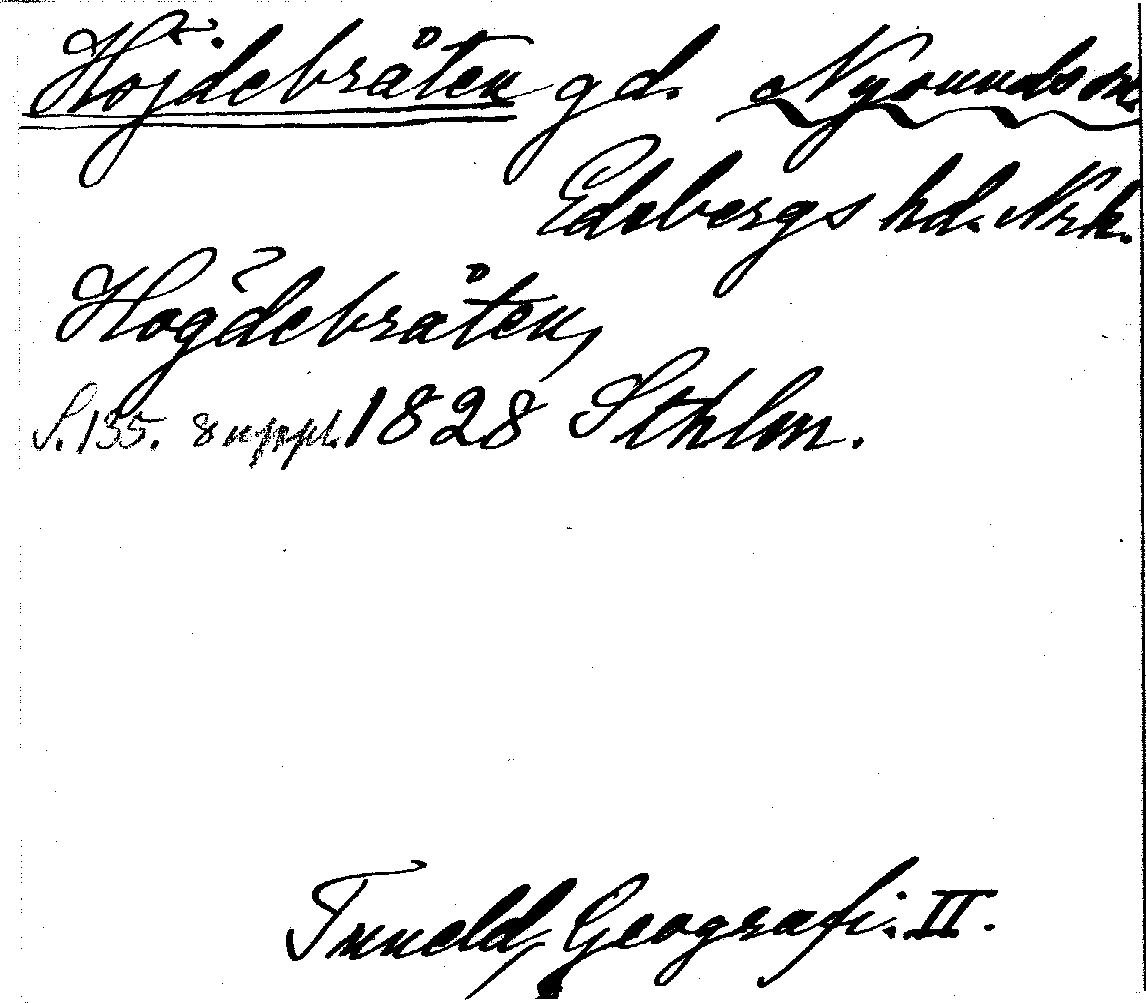 Höjdebråten gd. Nysunds sn.
Edsbergs hd. Nrk.
Högdebråten,
S. 135. 8 uppl. 1828 Sthlm.
Tuneld, Geografi. II.